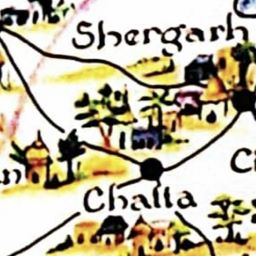 Shergarh
Chatta